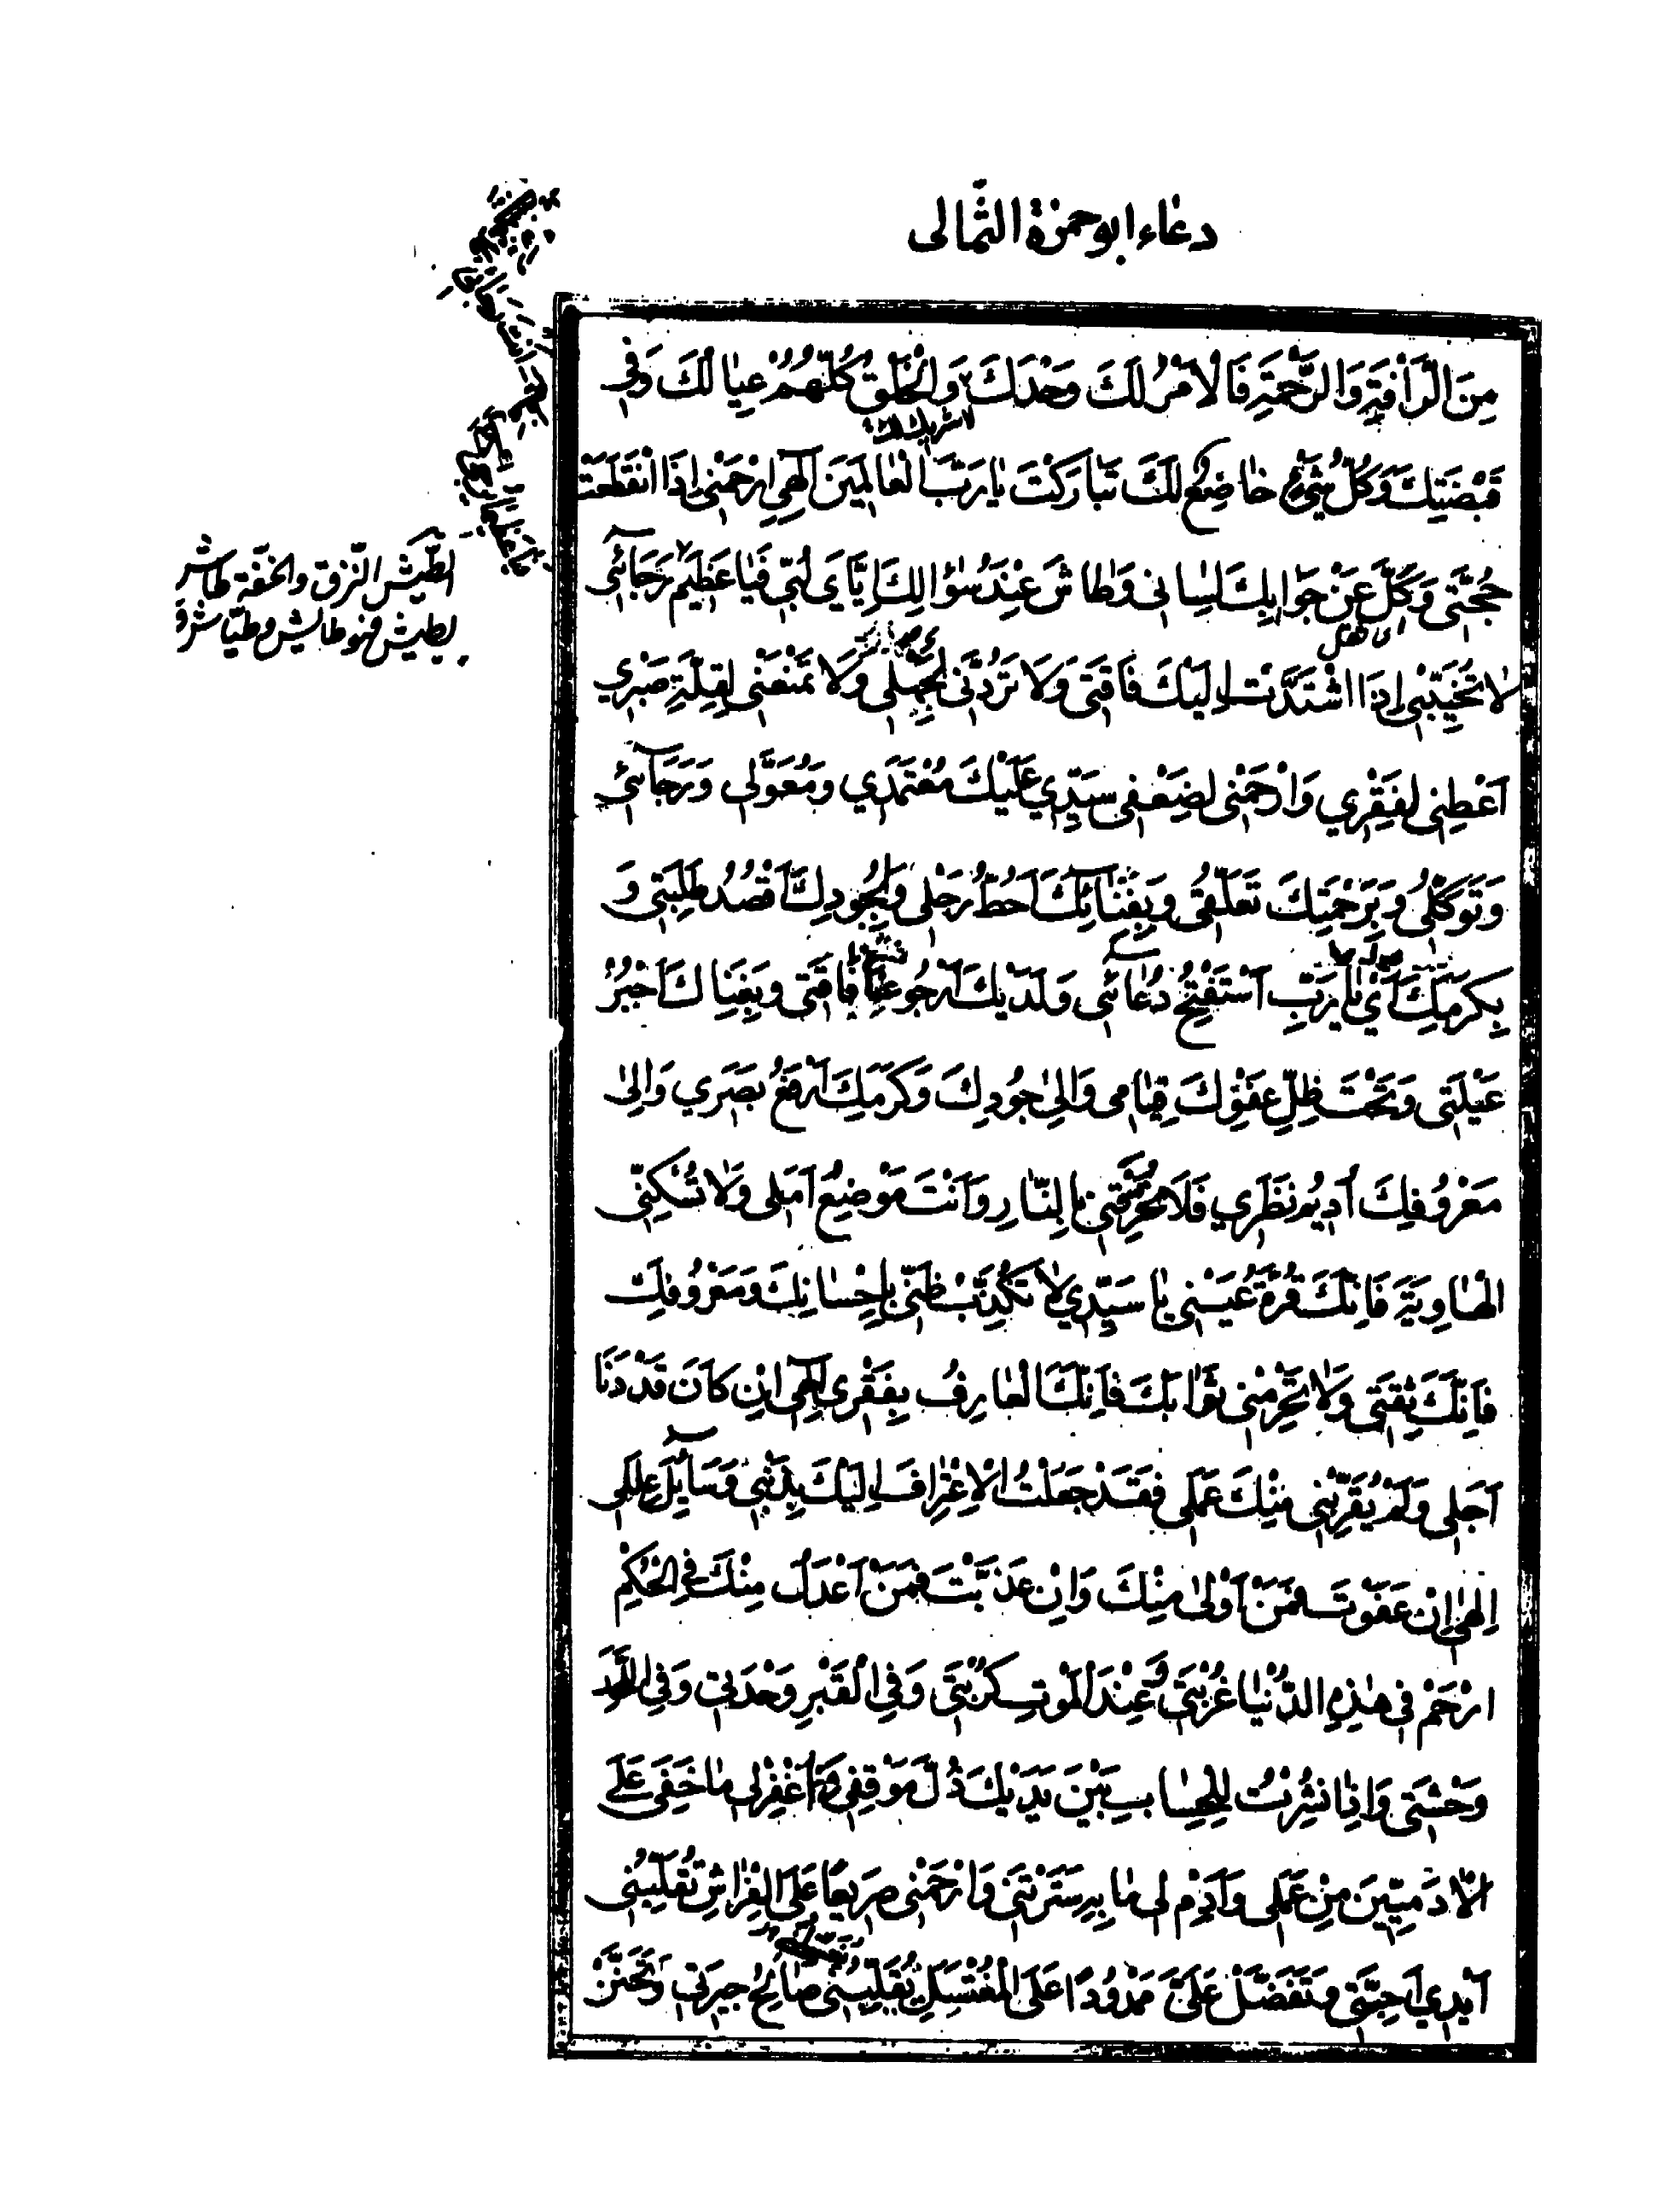 دعاء ابو حمزة الثمالى
مِنَ الرَّأْفَةِ وَالرَّحْمَةِ فَالْاَمْرُ لَكَ وَحْدَكَ وَالْخَلْقُ كُلُّهُمْ عِيٰالُكَ وَفِي
لا شريك لك
قَبْضَتِكَ وَكُلُّ شَيْءٍ خٰاضِعٌ لَكَ تَبٰارَكْتَ يٰا رَبَّ الْعٰالَمِينَ اِلٰهِي ارْحَمْنِي اِذَا انْقَطَعَتْ
حُجَّتِي وَكَلَّ عَنْ جَوٰابِكَ لِسٰانِي وَطٰاشَ عِنْدَ سُؤٰالِكَ اِيّٰايَ لُبِّي فَيٰا عَظِيمَ رَجٰائِي
لٰا تُخَيِّبْنِي اِذَا اشْتَدَّتْ اِلَيْكَ فٰاقَتِي وَلٰا تَرُدَّنِي لِجَهْلِي وَلٰا تَمْنَعْنِي لِقِلَّةِ صَبْرِي
اَعْطِنِي لِفَقْرِي وَارْحَمْنِي لِضَعْفِي سَيِّدِي عَلَيْكَ مُعْتَمَدِي وَمُعَوَّلِي وَرَجٰائِي
وَتَوَكُّلِي وَبِرَحْمَتِكَ تَعَلُّقِي وَبِفِنٰائِكَ اَحُطُّ رَحْلِي وَلِجُودِكَ اَقْصُدُ طَلِبَتِي وَ
بِكَرَمِكَ اَيْ رَبِّ اَسْتَفْتِحُ دُعٰائِي وَلَدَيْكَ اَرْجُو فٰاقَتِي وَبِغِنٰاكَ اَجْبُرُ
عَيْلَتِي وَتَحْتَ ظِلِّ عَفْوِكَ قِيٰامِي وَاِلىٰ جُودِكَ وَكَرَمِكَ اَرْفَعُ بَصَرِي وَاِلىٰ
مَعْرُوفِكَ اُدِيمُ نَظَرِي فَلٰا تُحْرِقْنِي بِالنّٰارِ وَاَنْتَ مَوْضِعُ اَمَلِي وَلٰا تُسْكِنِّي
الْهٰاوِيَةَ فَاِنَّكَ قُرَّةُ عَيْنِي يٰا سَيِّدِي لٰا تُكَذِّبْ ظَنِّي بِاِحْسٰانِكَ وَمَعْرُوفِكَ
فَاِنَّكَ ثِقَتِي وَلٰا تَحْرِمْنِي ثَوٰابَكَ فَاِنَّكَ الْعٰارِفُ بِفَقْرِي اِلٰهِي اِنْ كٰانَ قَدْ دَنٰا
اَجَلِي وَلَمْ يُقَرِّبْنِي مِنْكَ عَمَلِي فَقَدْ جَعَلْتُ الْاِعْتِرٰافَ اِلَيْكَ بِذَنْبِي وَسٰائِلَ عِلَلِي
اِلٰهِي اِنْ عَفَوْتَ فَمَنْ اَوْلىٰ مِنْكَ وَاِنْ عَذَّبْتَ فَمَنْ اَعْدَلُ مِنْكَ فِي الْحُكْمِ
ارْحَمْ فِي هٰذِهِ الدُّنْيٰا غُرْبَتِي وَعِنْدَ الْمَوْتِ كُرْبَتِي وَفِي الْقَبْرِ وَحْدَتِي وَفِي اللَّحْدِ
وَحْشَتِي وَاِذٰا نُشِرْتُ لِلْحِسٰابِ بَيْنَ يَدَيْكَ ذُلَّ مَوْقِفِي وَاغْفِرْ لِي مٰا خَفِيَ عَلَى
الْاٰدَمِيِّينَ مِنْ عَمَلِي وَاَدِمْ لِي مٰا بِهِ سَتَرْتَنِي وَارْحَمْنِي صَرِيعًا عَلَى الْفِرٰاشِ تُقَلِّبُنِي
اَيْدِي اَحِبَّتِي وَتَفَضَّلْ عَلَيَّ مَمْدُودًا عَلَى الْمُغْتَسَلِ يُقَلِّبُنِي صٰالِحُ جِيرَتِي وَتَحَنَّنْ
الطَّيش النَّزق والخفّة طاش
يطيش فهو طايش وطيّاش ق